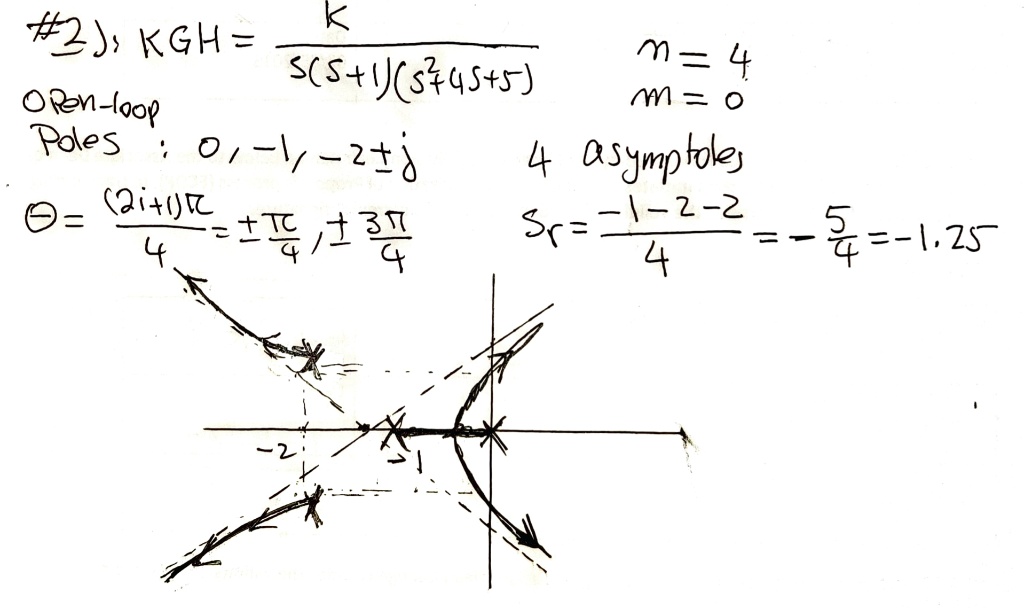 #2): KGH = K / S(S+1)(S²+4S+5)
n = 4
m = 0
Open-loop
Poles : 0, -1, -2±j
4 asymptotes
Θ = (2i+1)π / 4 = ± π/4, ± 3π/4
Sr = -1-2-2 / 4 = - 5/4 = -1.25
-2
-1